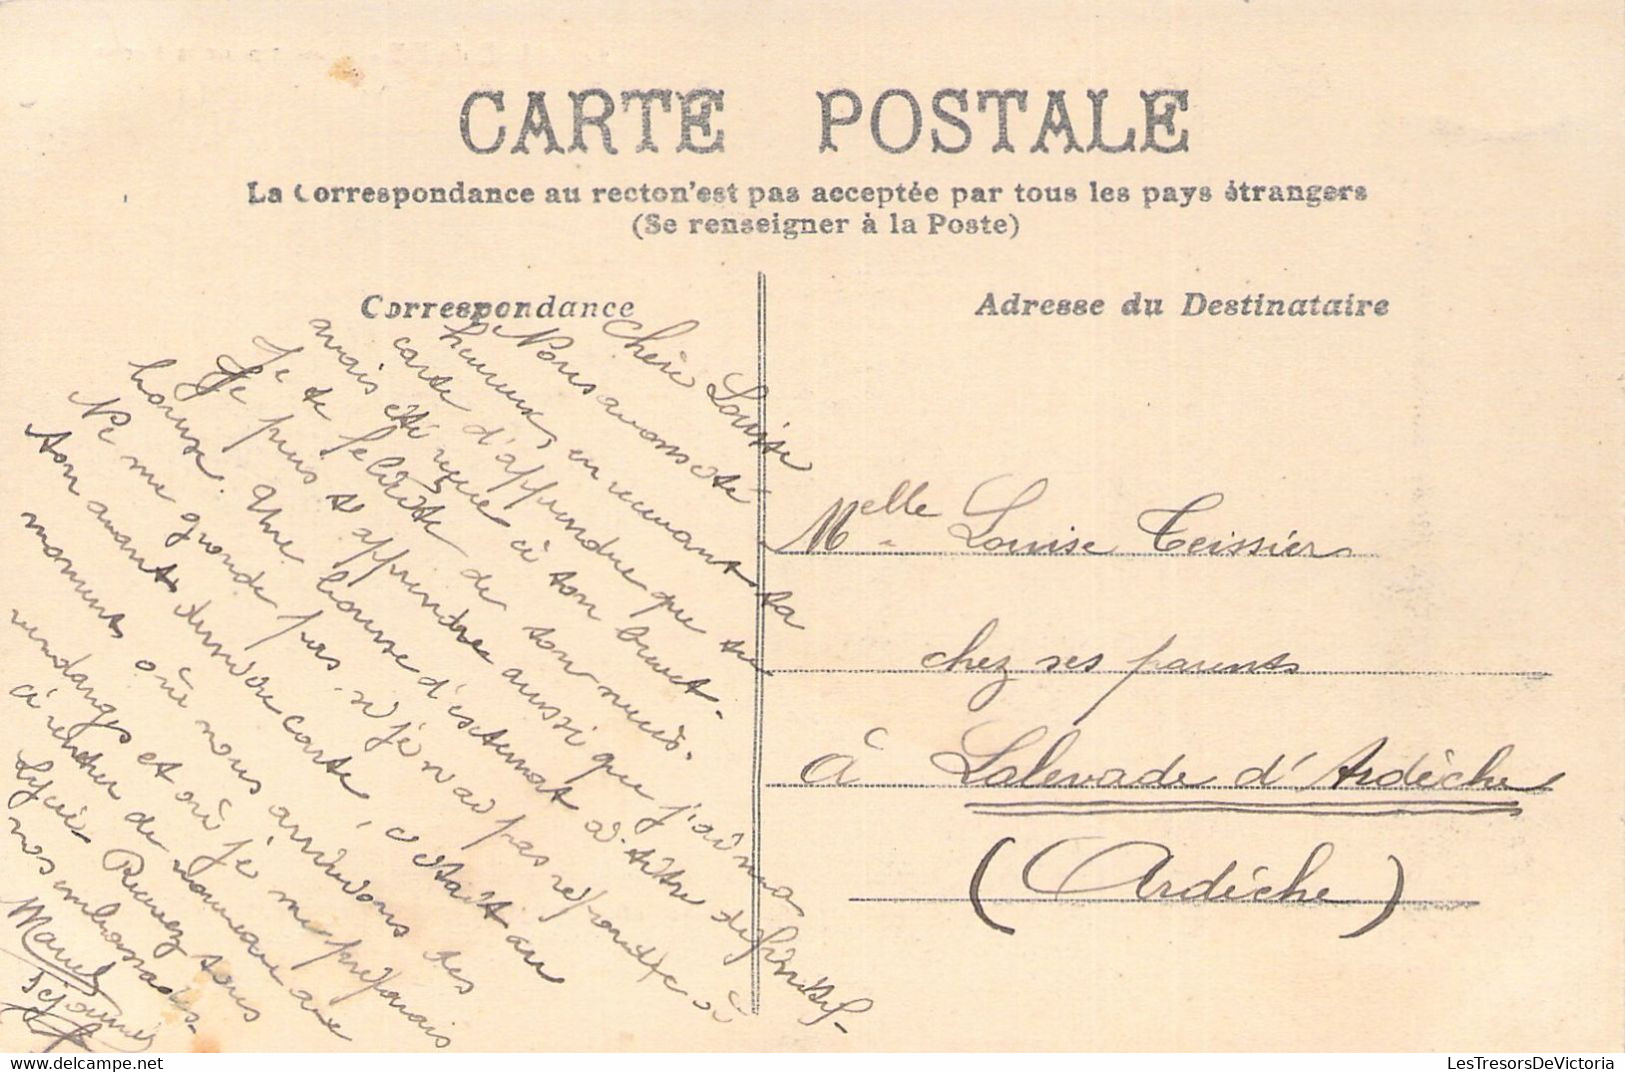 CARTE POSTALE
La Correspondance au recto n'est pas acceptée par tous les pays étrangers
(Se renseigner à la Poste)
Correspondance
Chère Louise
Nous avons été
heureux en recevant ta
carte d'apprendre que tu
avais été reçue à ton brevet.
Je te félicite de ton succès.
Je puis t'apprendre aussi que j'ai ma
bourse. Une bourse d'externat à titre définitif.
Ne me gronde pas si je n'ai pas répondu à
ton avant dernière carte, c'était au
moment où nous arrivions des
vendanges et où je me préparais
à rentrer de nouveau au
Lycée. Recevez tous
nos embrassades.
Marcel
Adresse du Destinataire
Melle Louise Teissier
chez ses parents
à Lalevade d'Ardèche
(Ardèche)
LesTresorsDeVictoria.com